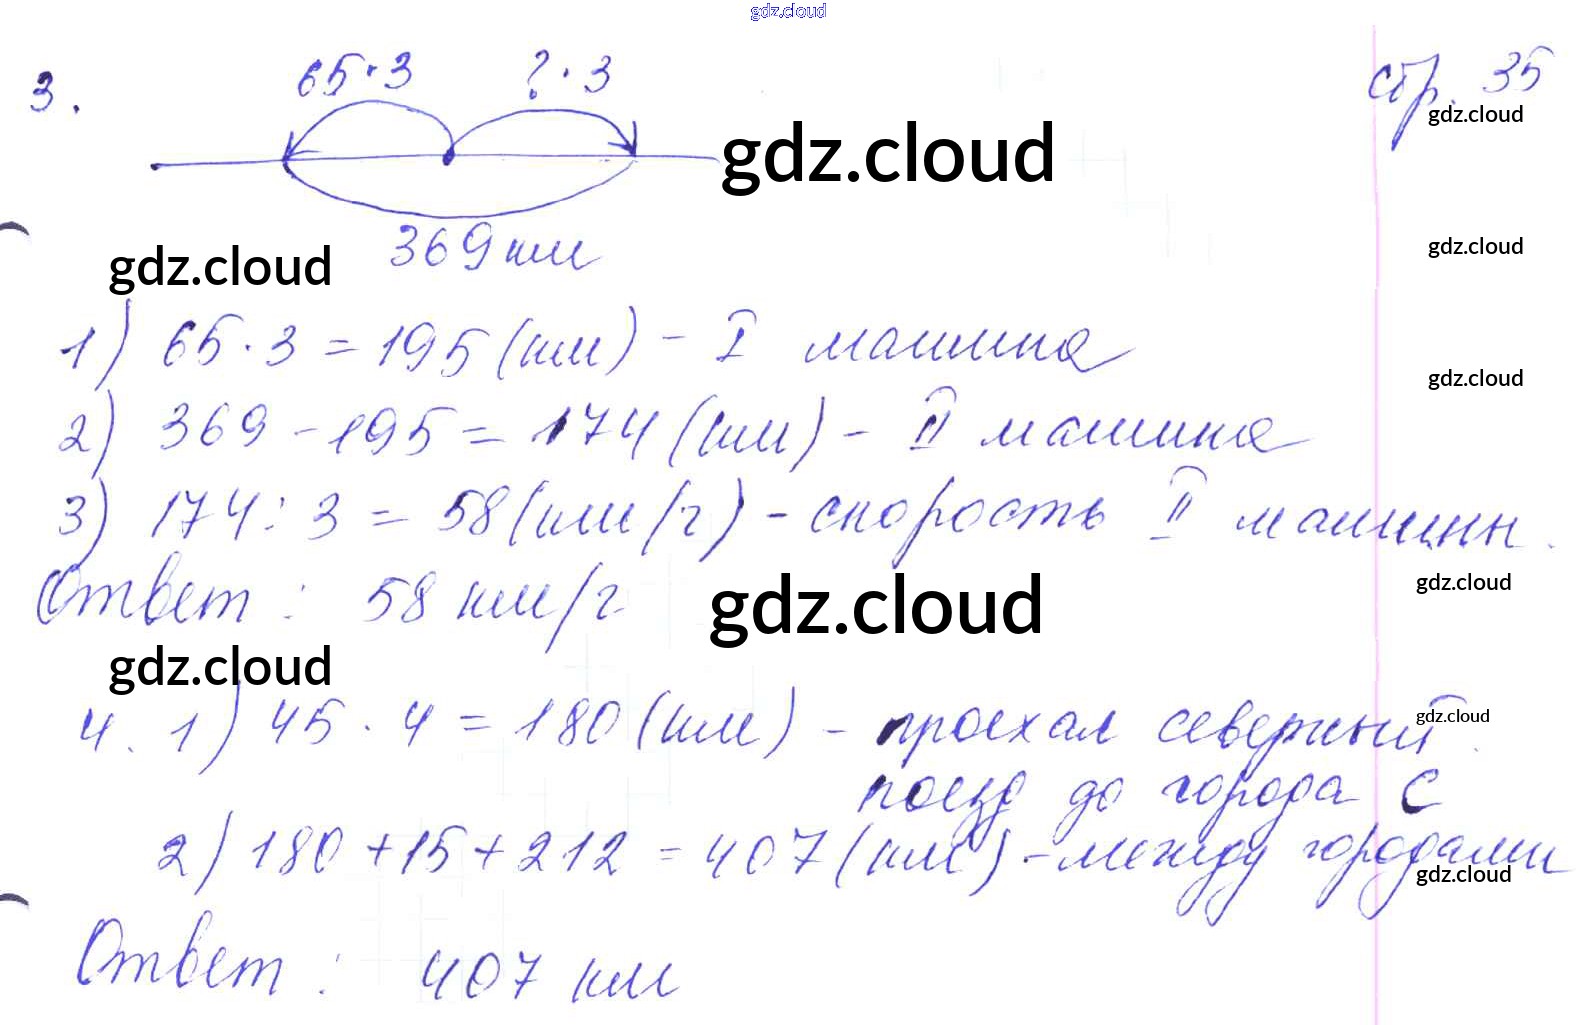 gdz.cloud
65·3 ?·3 стр. 35
3.
gdz.cloud
gdz.cloud
369 км
gdz.cloud
gdz.cloud
1) 65·3=195 (км) – I машина
gdz.cloud
2) 369–195=174 (км) – II машина
3) 174:3=58 (км/г) – скорость II машины.
Ответ: 58 км/г
gdz.cloud
gdz.cloud
gdz.cloud
4. 1) 45·4=180 (км) – проехал северный
gdz.cloud
поезд до города С
2) 180+15+212=407 (км) – между городами
gdz.cloud
Ответ: 407 км